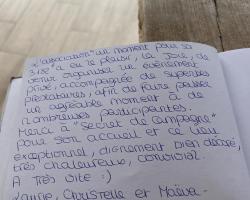 L'association "un moment pour sa
312" a eu le plaisir, la joie, de
venir organiser un événement
privé, accompagnée de superbes
prestataires, afin de faire passer
un agréable moment à de
nombreuses participantes.
Merci à "Secret de Campagne"
pour son accueil et ce lieu
exceptionnel, dignement bien décoré,
très chaleureux, convivial.
A très vite :)
Christelle et Maëva.